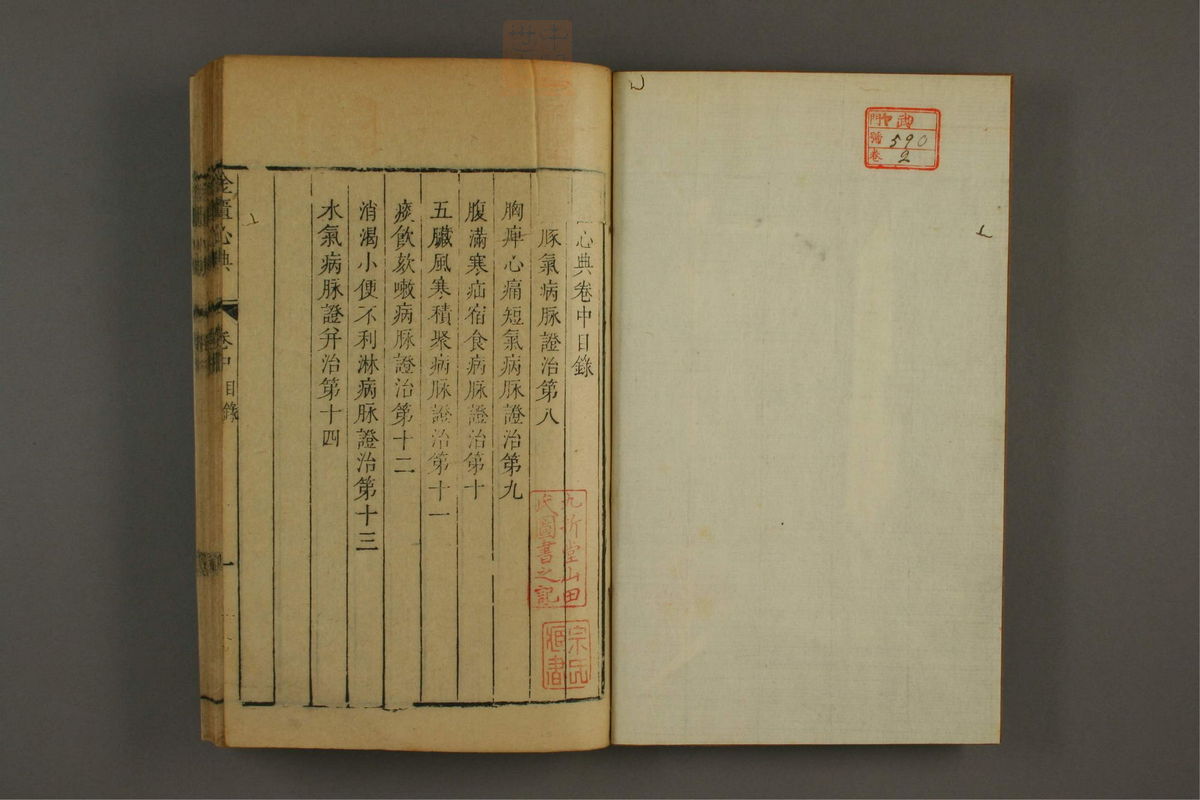 門 武
號 590
卷 2
心典卷中目錄
豚氣病脉證治第八
胸痺心痛短氣病脉證治第九
腹滿寒疝宿食病脉證治第十
五臟風寒積聚病脉證治第十一
痰飲欬嗽病脉證治第十二
消渴小便不利淋病脉證治第十三
水氣病脉證并治第十四
金匱心典 卷中 目錄 一
九折堂山田
氏圖書之記